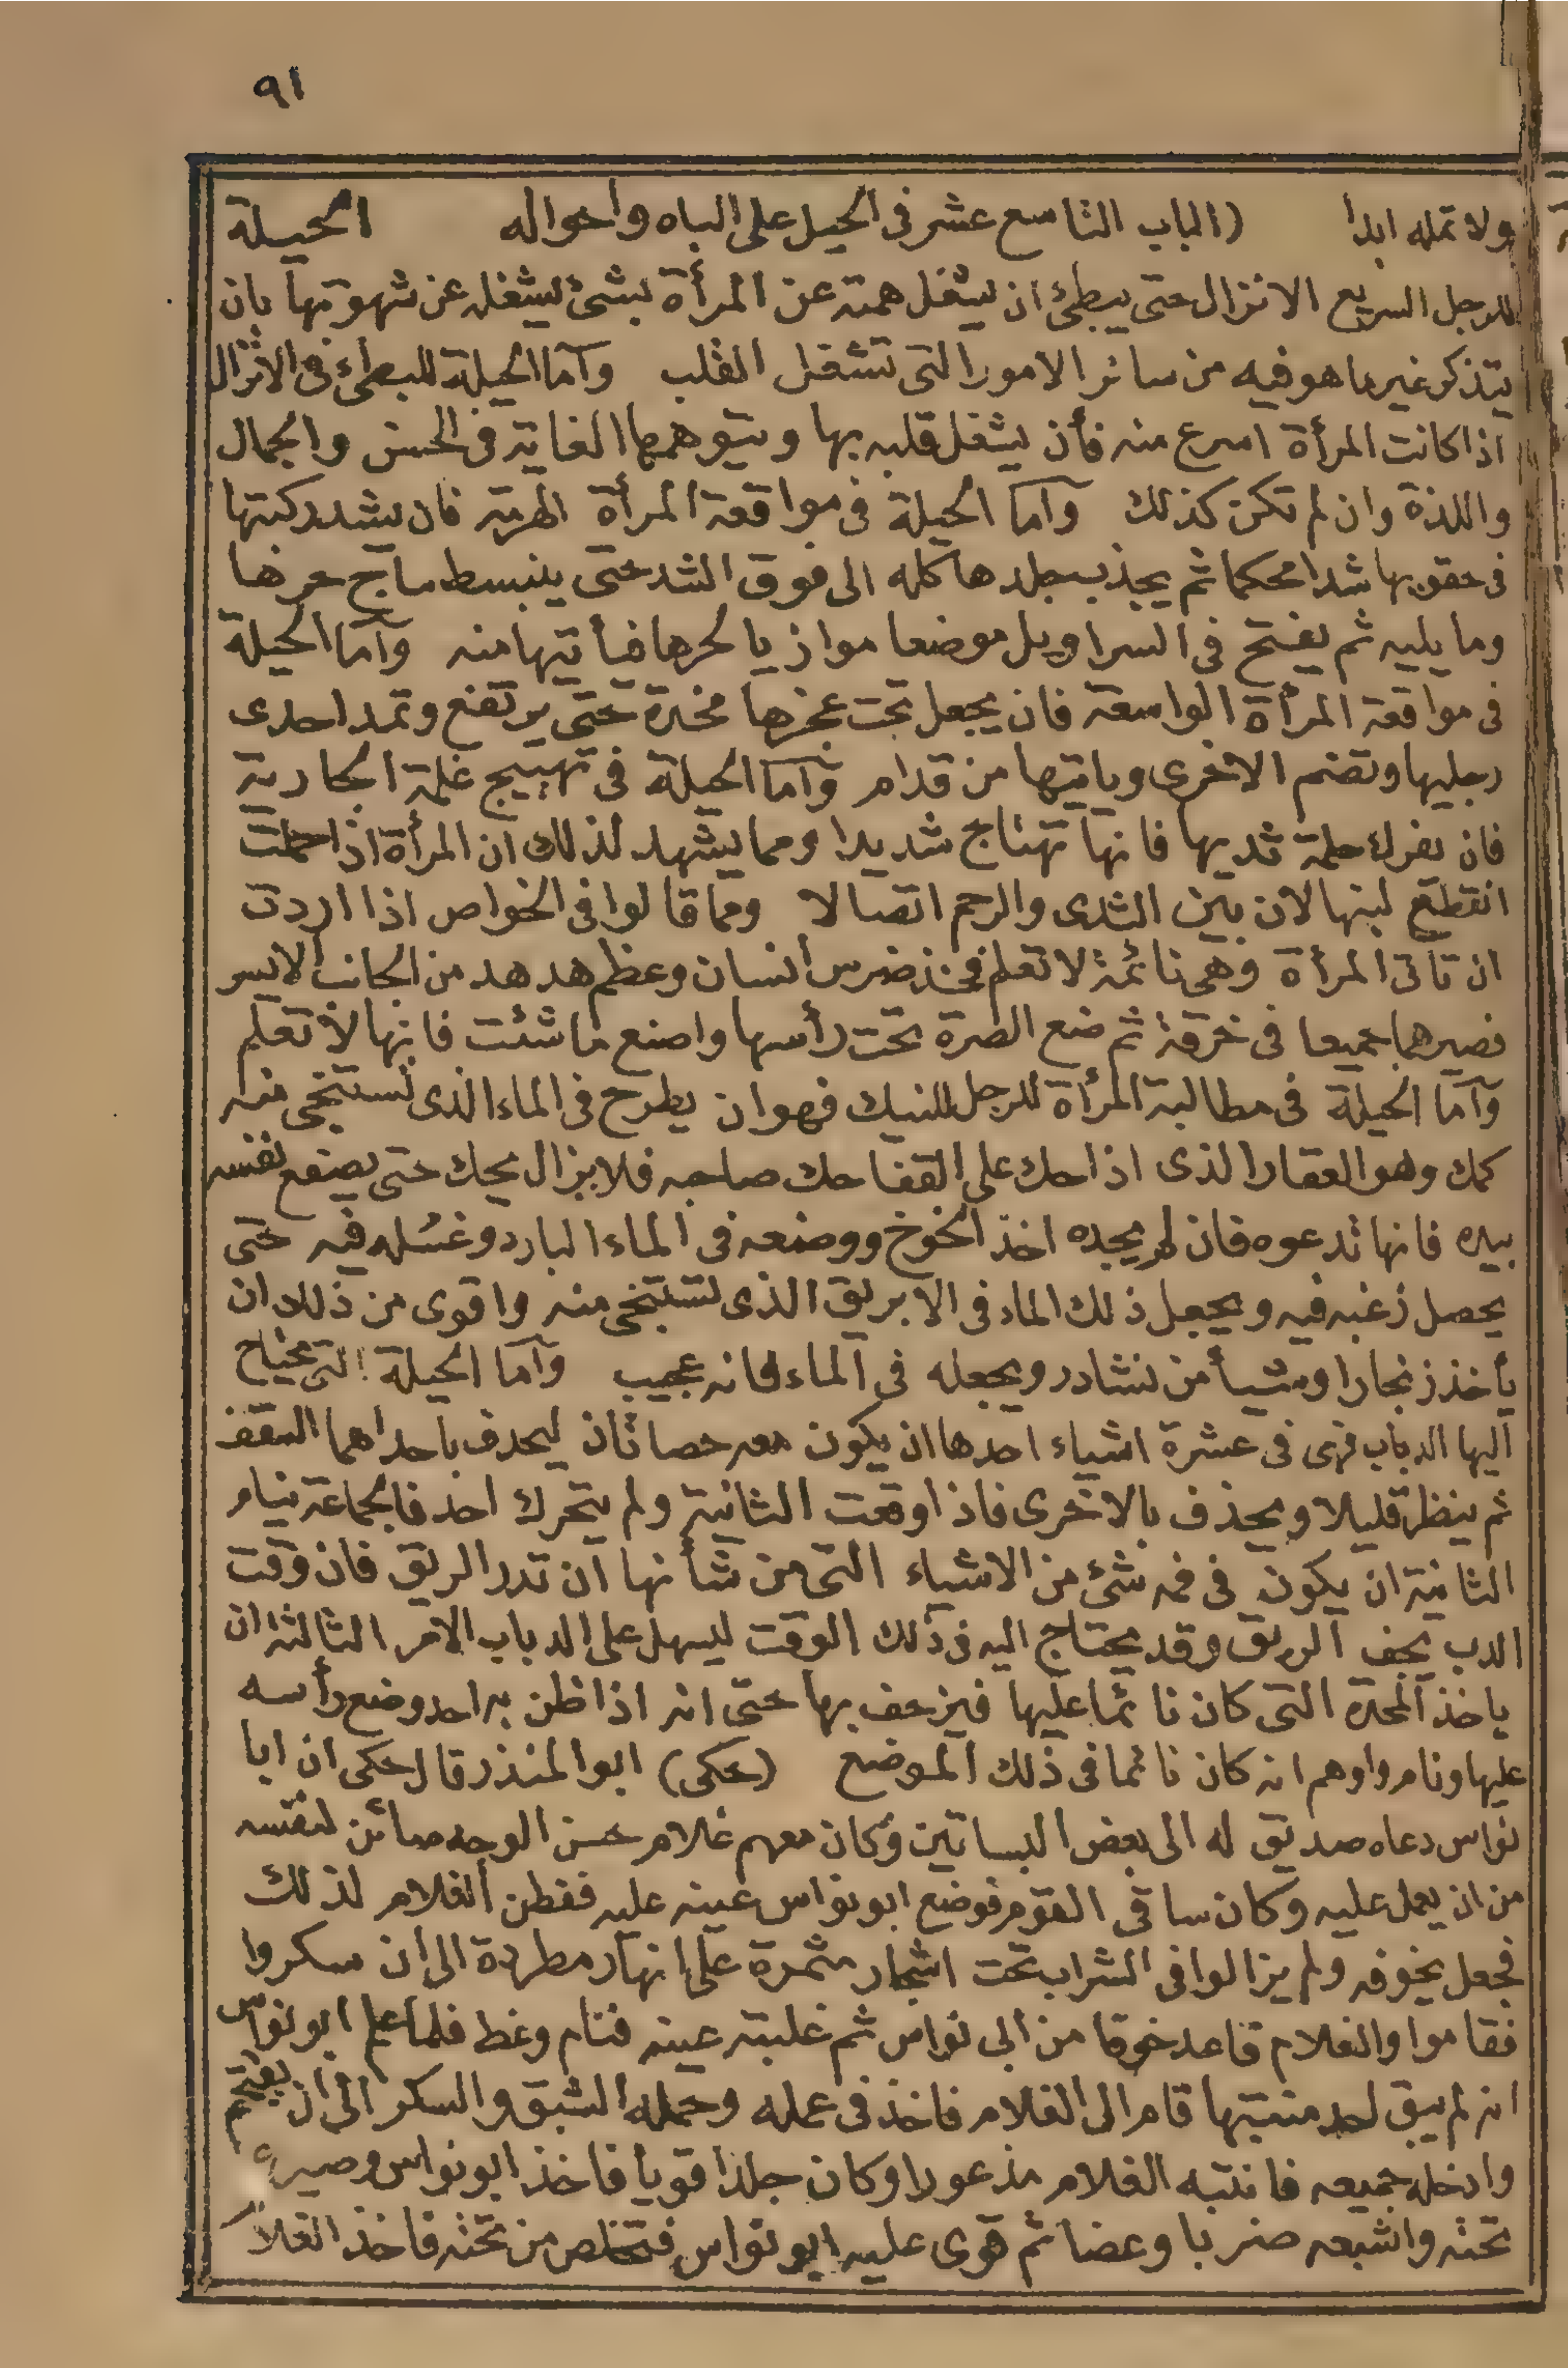 ٩١
ولا تمله ابدا (الباب التاسع عشر فى الحيل على الباه واحواله الحيلة
للرجل السريع الانزال حتى يبطئ ان يشغل همته عن المرأة بشئ يشغله عن شهوتها بان
يتذكر غير ما هو فيه من سائر الامور التى تشغل القلب وآما الحيلة للبطئ فى الانزال
اذا كانت المرأة اسرع منه فأن يشغل قلبه بها ويتوهمها الغاية فى الحسن والجمال
واللذة وان لم تكن كذلك وآما الحيلة فى مواقعة المرأة الهرمة فان يشد ركبتها
فى حقويها شدا محكما ثم يجذب جلدها كله الى فوق الشد حتى ينبسط ما ج حرها
وما يليه ثم يفتح فى السراويل موضعا موازيا لحرها فيأتيها منه وآما الحيلة
فى مواقعة المرأة الواسعة فان يجعل تحت عجزها مخدة حتى يرتفع وتمد احدى
رجليها وتضم الاخرى وياتيها من قدام وآما الحيلة فى تهييج غلمة الجارية
فان يفرك حلمة ثديها فانها تهتاج شديدا ومما يشهد لذلك ان المرأة اذا حملت
انقطع لبنها لان بين الثدى والرحم اتصالا ومما قالوا فى الخواص اذا اردت
ان تاتى المرأة وهى نائمة لا تعلم فخذ ضرس انسان وعظم هدهد من الجانب الايسر
فصيرهما جميعا فى خرقة ثم ضع الصرة تحت رأسها واصنع ما شئت فانها لا تعلم
وآما الحيلة فى مطالبة المرأة للرجل للنيك فهو ان يطرح فى الماء الذى تستنجى منه
كمك وهو العقار الذى اذا حك على القفا حك صاحبه فلا يزال يحك حتى يصفع نفسه
بيده فانها تدعوه فان لم يجده اخذ الخوخ ووضعه فى الماء البارد وغسله فيه حتى
يحصل زغبه فيه ويجعل ذلك الماء فى الابريق الذى تستنجى منه واقوى من ذلك ان
يأخذ زنجارا وشيأ من نشادر ويجعله فى الماء فانه عجيب وآما الحيلة التى يحتاج
اليها الدباب فهى فى عشرة اشياء احدها ان يكون معه حصاتان ليحذف باحداهما السقف
ثم ينظر قليلا ويحذف بالاخرى فاذا وقعت الثانية ولم يتحرك احد فالجماعة نيام
الثانية ان يكون فى فمه شئ من الاشياء التى من شأنها ان تدر الريق فان وقت
الدب يجف الريق وقد يحتاج اليه فى ذلك الوقت ليسهل على الدباب الامر الثالثة ان
ياخذ المخدة التى كان نائما عليها فيزحف بها حتى انه اذا ظن به احد وضع رأسه
عليها ونام واوهم انه كان نائما فى ذلك الموضع (حكى) ابو المنذر قال حكى ان ابا
نواس دعاه صديق له الى بعض البساتين وكان معهم غلام حسن الوجه صائن لنفسه
من ان يعمل عليه وكان ساقى القوم فوضع ابو نواس عينه عليه ففطن الغلام لذلك
فجعل يخوفه ولم يزالوا فى الشراب تحت اشجار مثمرة على انهار مطردة الى ان سكروا
فقاموا والغلام قاعد خوفا من ابى نواس ثم غلبته عينه فنام وغط فلما علم ابو نواس
انه لم يبق احد منتبها قام الى الغلام فاخذ فى عمله وحمله الشبق والسكر الى ان يقتحم
وادخله جميعه فانتبه الغلام مذعورا وكان جلدا قويا فاخذ ابو نواس وصيره
تحته واشبعه ضربا وعضا ثم قوى عليه ابو نواس فتخلص من تحته فاخذ الغلام